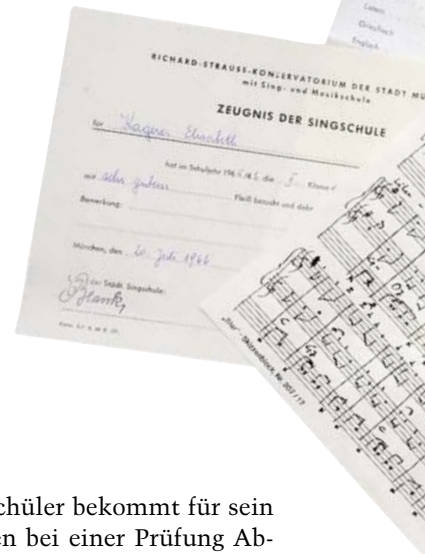 Latein
Griechisch
Englisch
RICHARD-STRAUSS-KONSERVATORIUM DER STADT MÜ
mit Sing- und Musikschule
ZEUGNIS DER SINGSCHULE
für Kagerer Elisabeth
hat im Schuljahr 196 die Klasse
mit sehr gutem Fleiß besucht und dabei
Bemerkung:
München, den 20. Juli 1966
der Städt. Singschule:
Blank
„Star“-Skizzenblock, Nr. 307/17
chüler bekommt für sein
en bei einer Prüfung Ab-